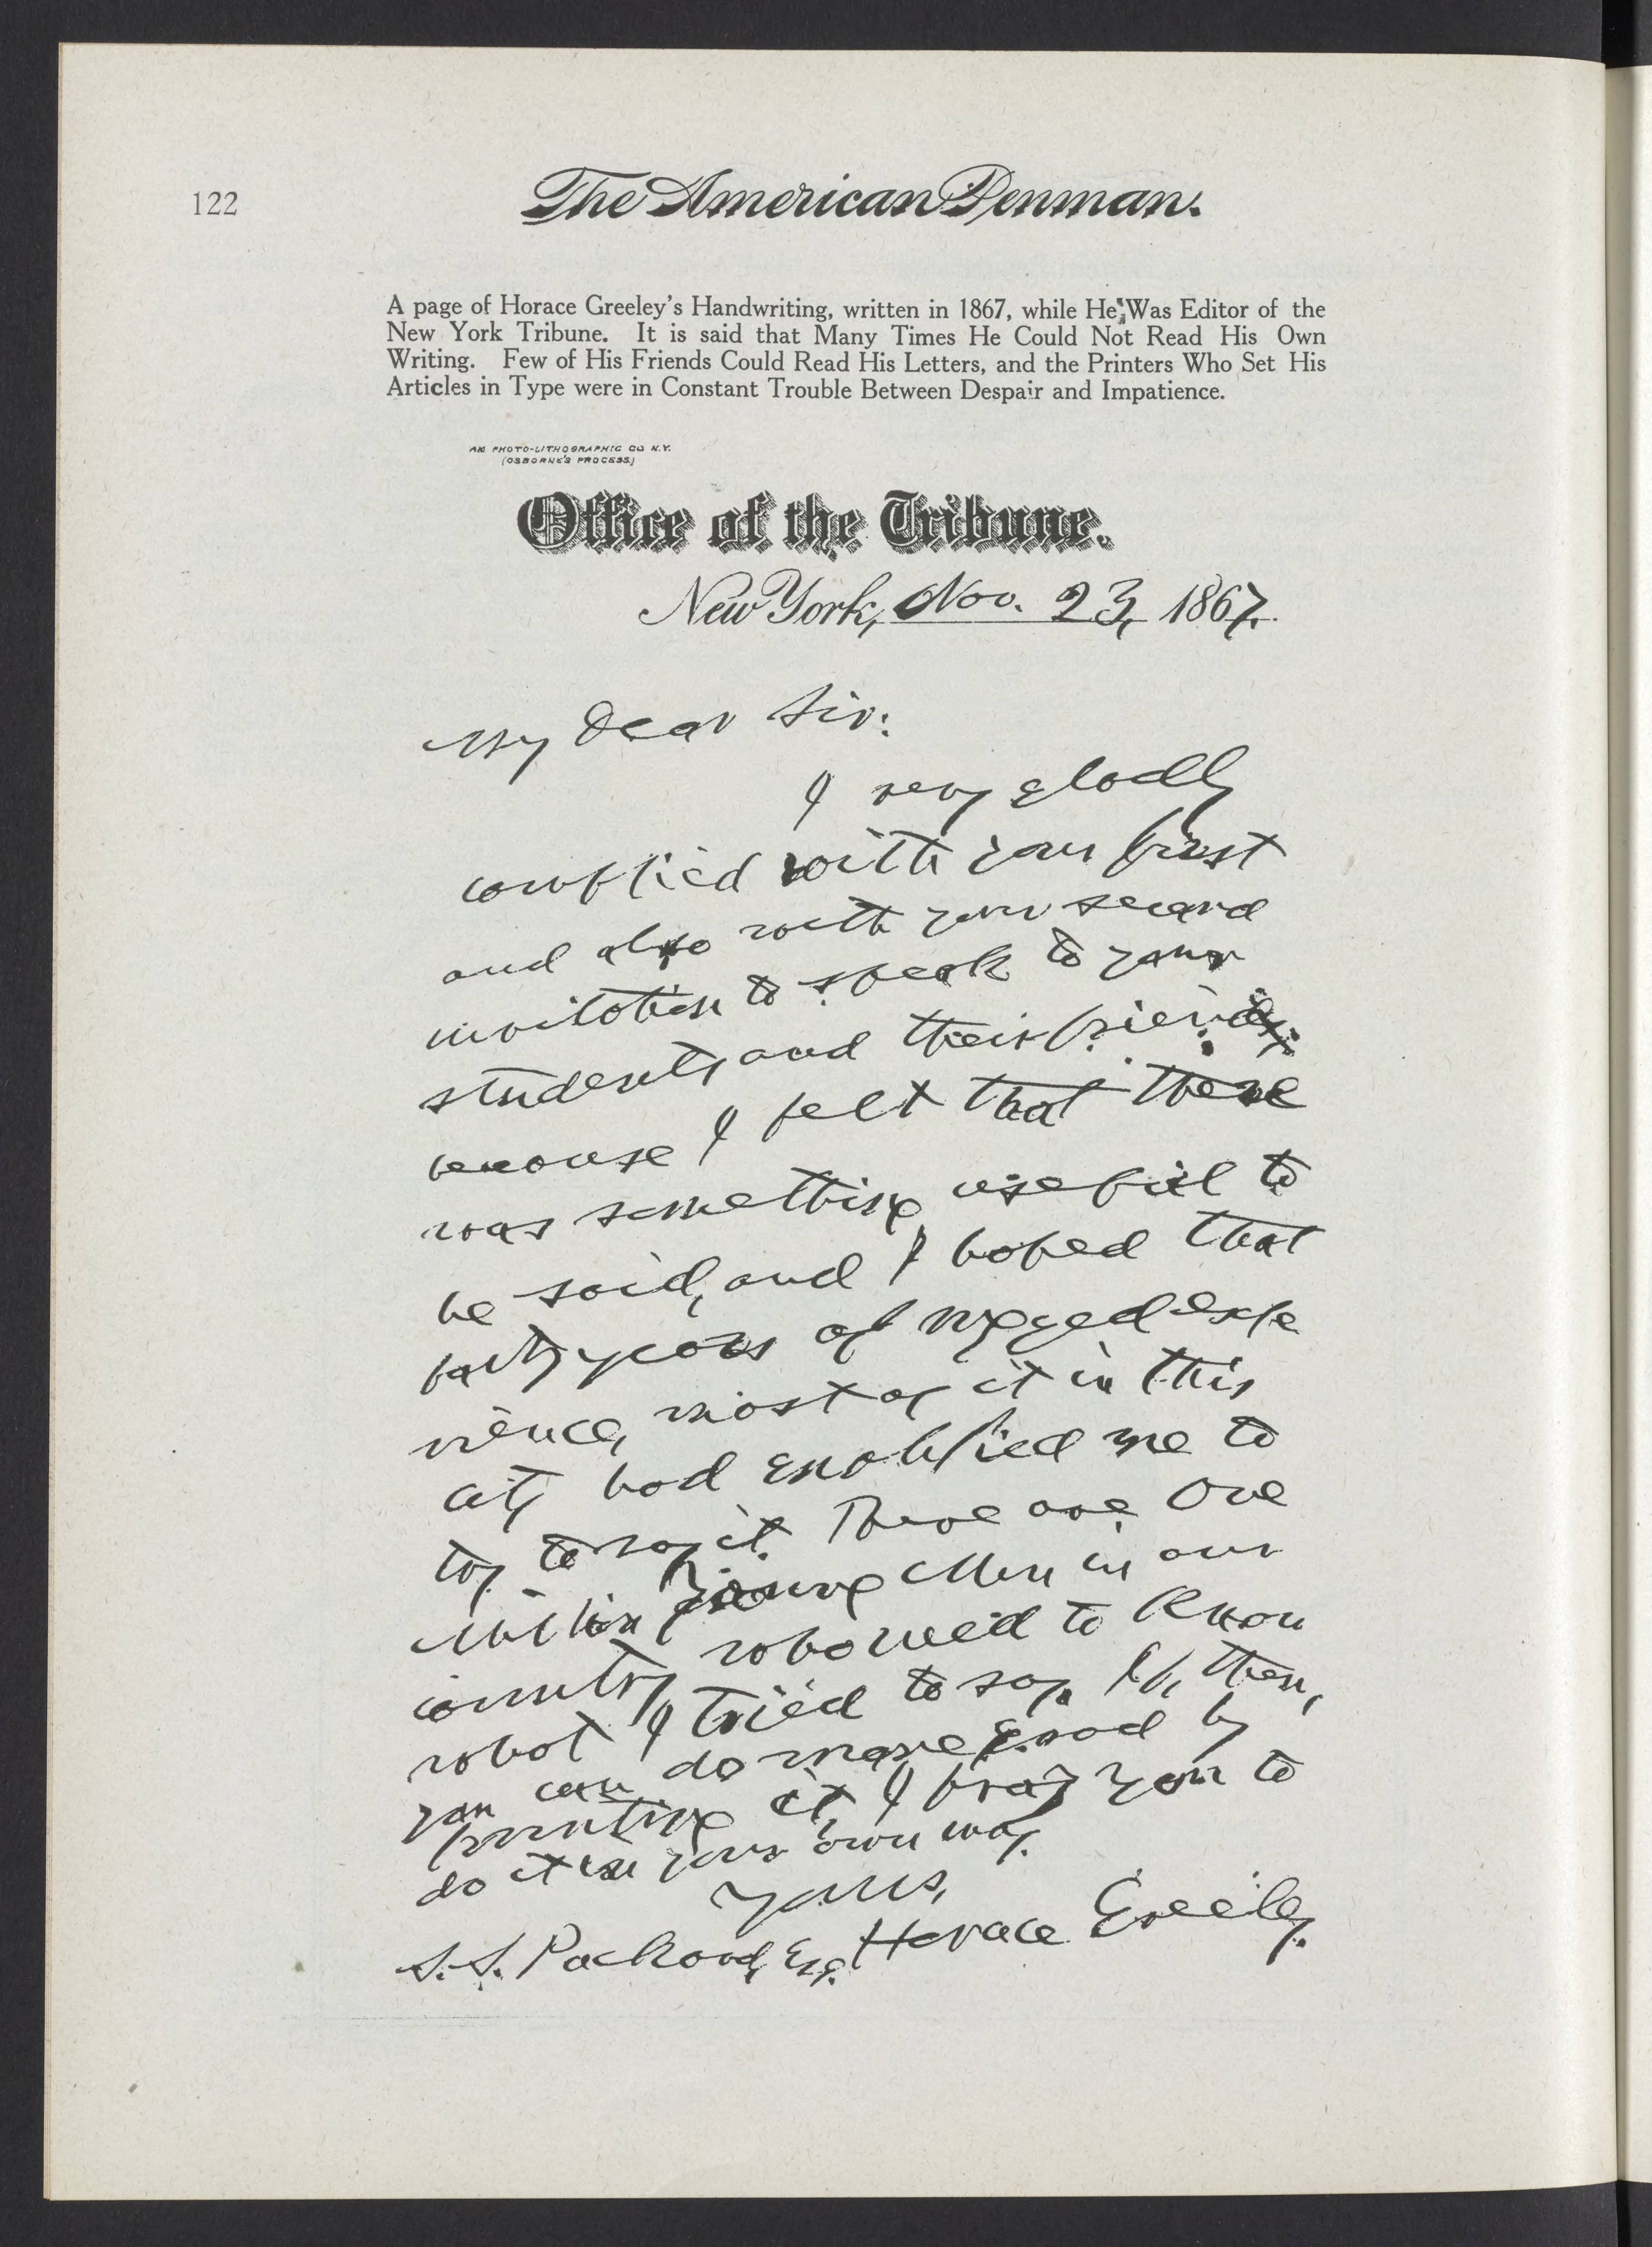 122
The American Penman.
A page of Horace Greeley's Handwriting, written in 1867, while He Was Editor of the
New York Tribune. It is said that Many Times He Could Not Read His Own
Writing. Few of His Friends Could Read His Letters, and the Printers Who Set His
Articles in Type were in Constant Trouble Between Despair and Impatience.
AM PHOTO-LITHOGRAPHIC CO N.Y.
(OSBORNE'S PROCESS)
Office of the Tribune.
New York, Nov. 23, 1867.
My Dear Sir:
I very gladly
complied with your first
and also with your second
invitation to speak to your
students and their friends,
because I felt that there
was something useful to
be said, and I hoped that
forty years of rugged expe
rience, most of it in this
city had enabled me to
try to say it. There are One
Million Young Men in our
country who need to know
what I tried to say. If, then,
you can do more good by
printing it, I pray you to
do it in your own way.
Yours,
Horace Greeley.
S.S. Packard, Esq.